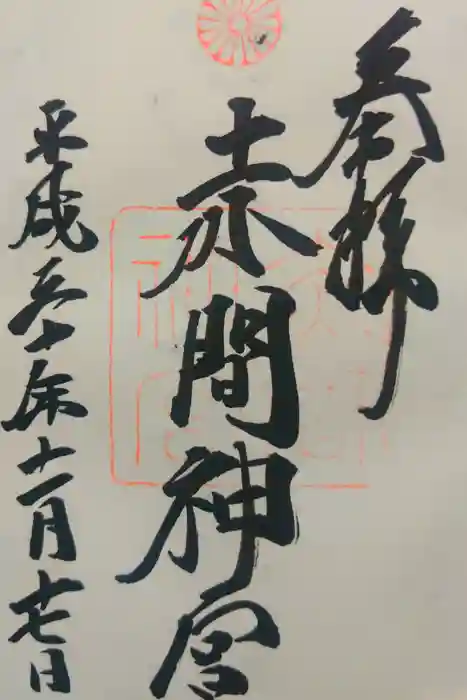 奉拝
赤間神宮
平成三十年十一月十七日